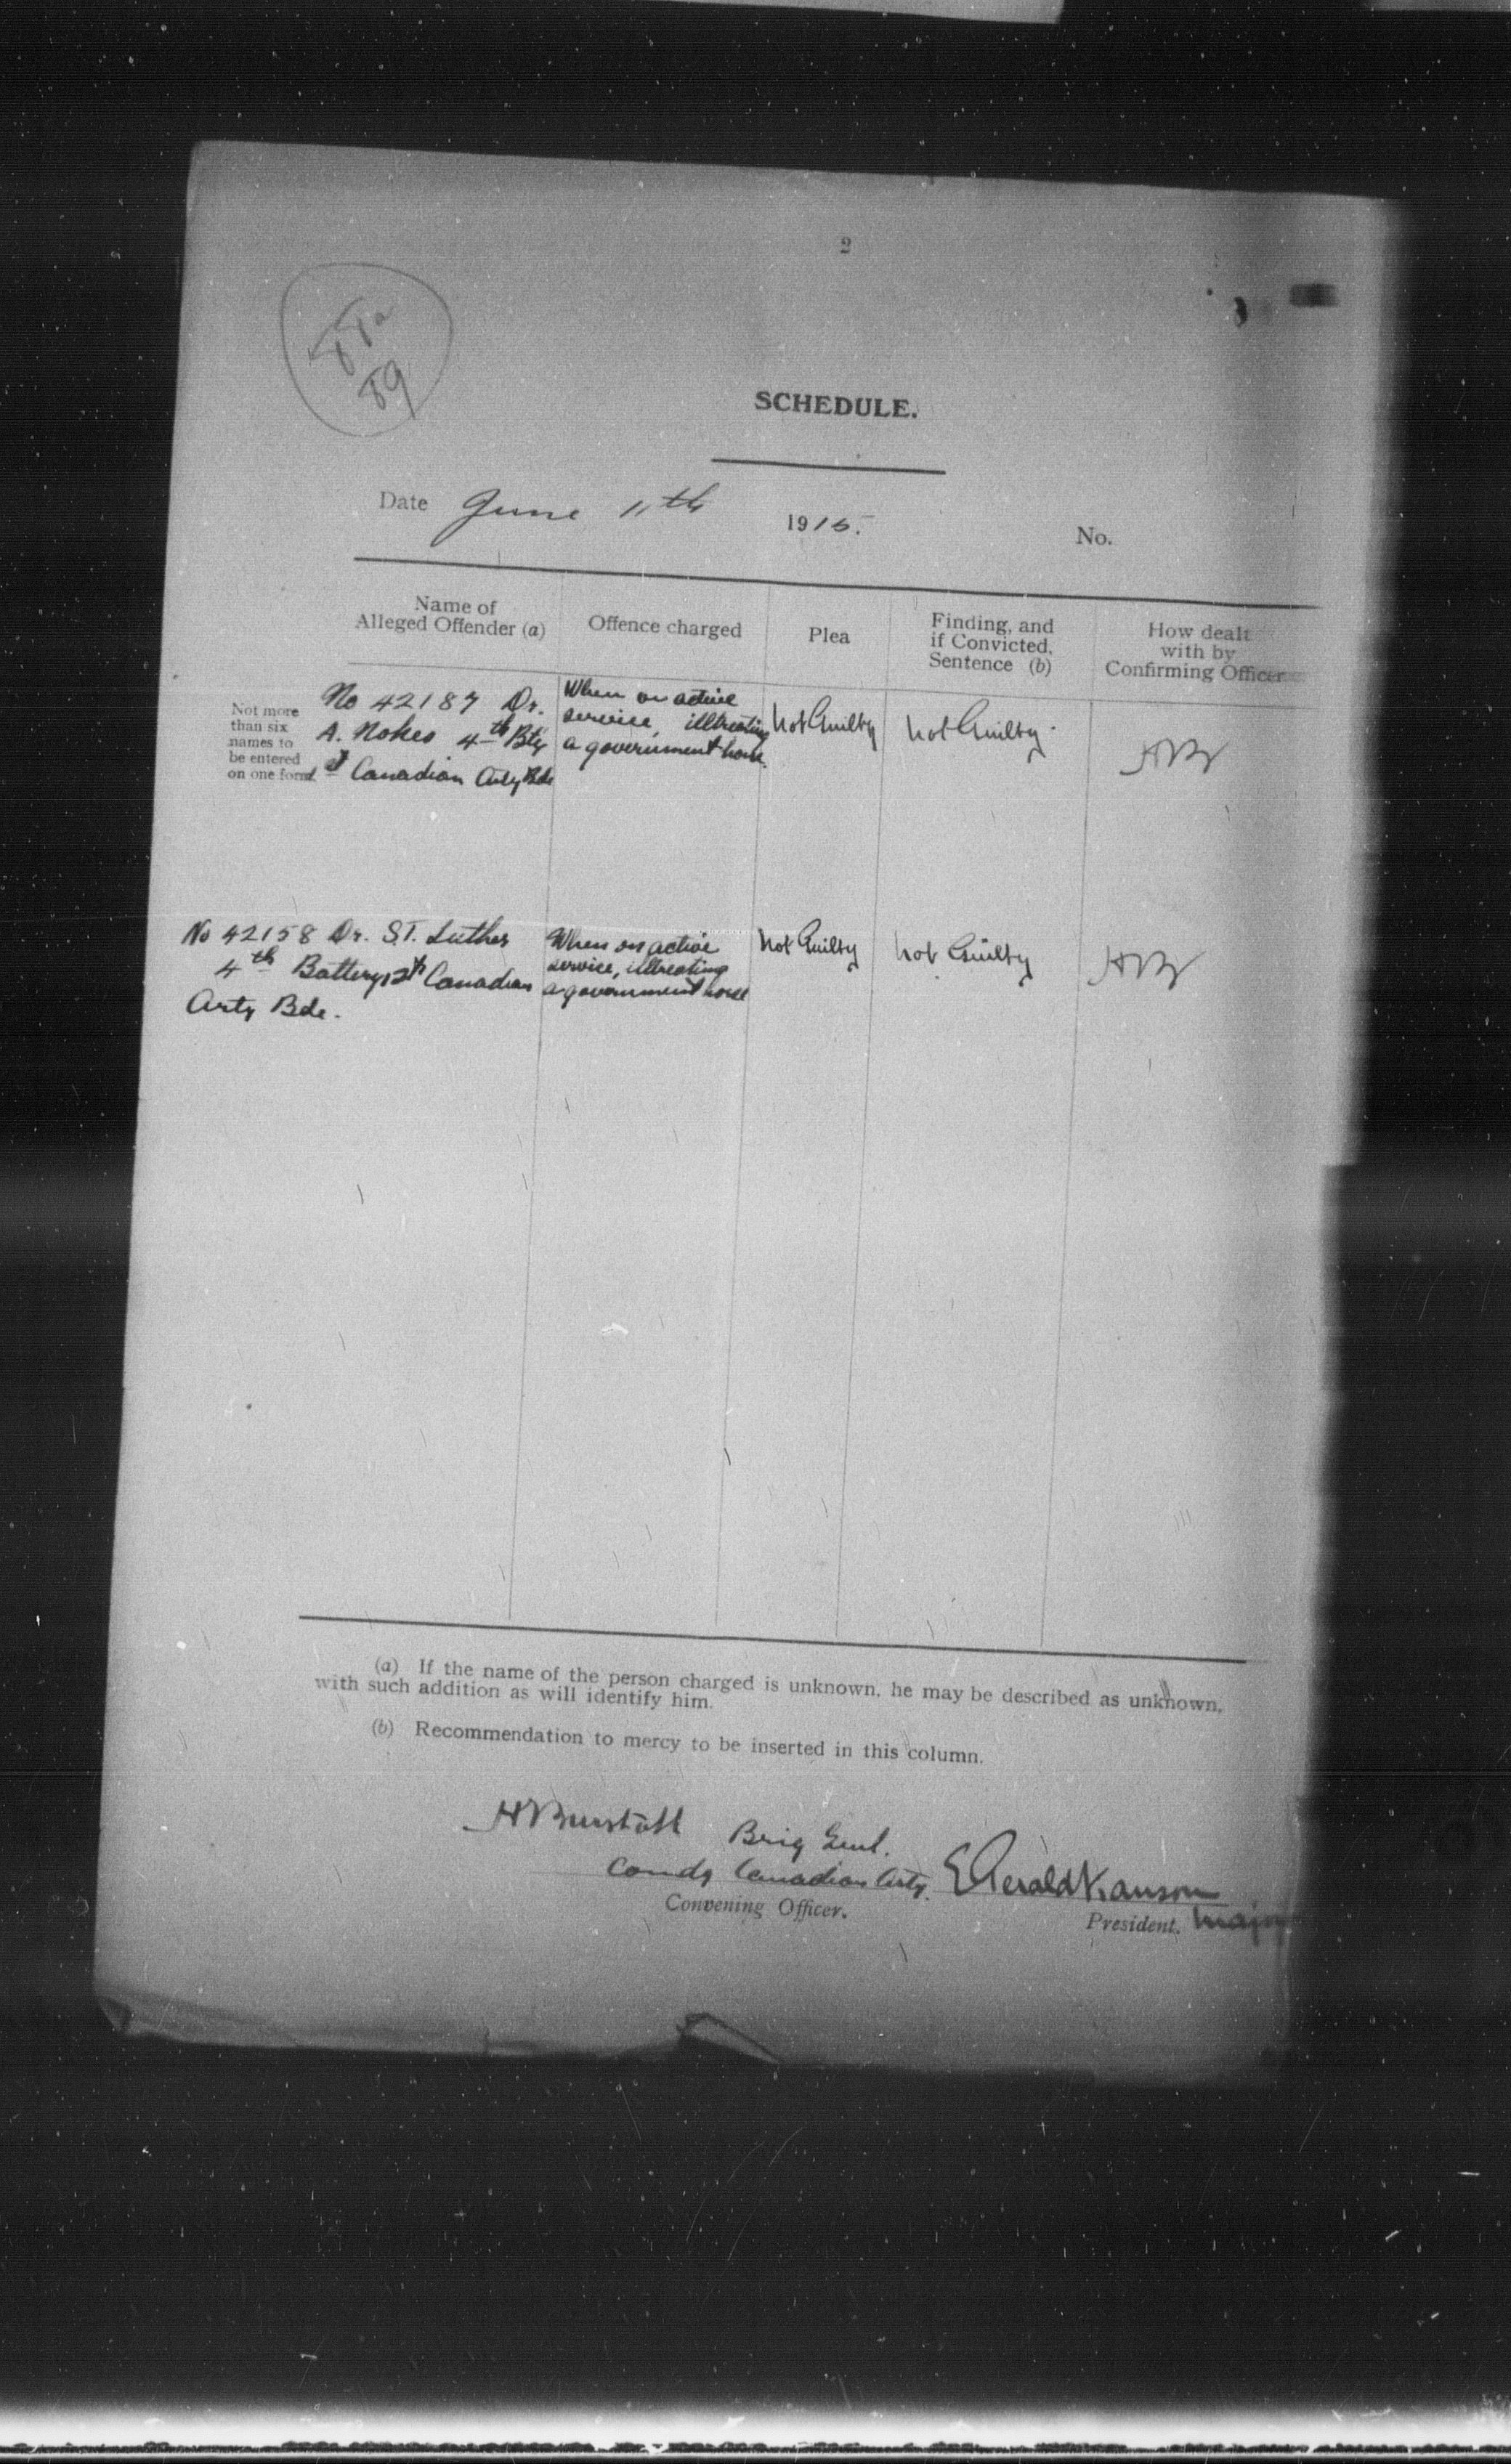 2
89
SCHEDULE.
Date June 11th 1915. No.
Name of
Alleged Offender (a)
Offence charged
Plea
Finding, and
if Convicted,
Sentence (b)
How dealt
with by
Confirming Officer
Not more
than six
names to
be entered
on one form.
No 42187 Dr.
A. Nokes 4th Bty
1st Canadian Arty Bde
When on active
service, illtreating
a government horse.
Not Guilty
Not Guilty.
HB
No 42158 Dr. S.T. Luther
4th Battery, 1st Canadian
Arty Bde.
When on active
service, illtreating
a government horse
Not Guilty
Not Guilty
HB
(a) If the name of the person charged is unknown, he may be described as unknown,
with such addition as will identify him.
(b) Recommendation to mercy to be inserted in this column.
HBurstall Brig Genl.
Comdg Canadian Arty.
Convening Officer.
President. Major